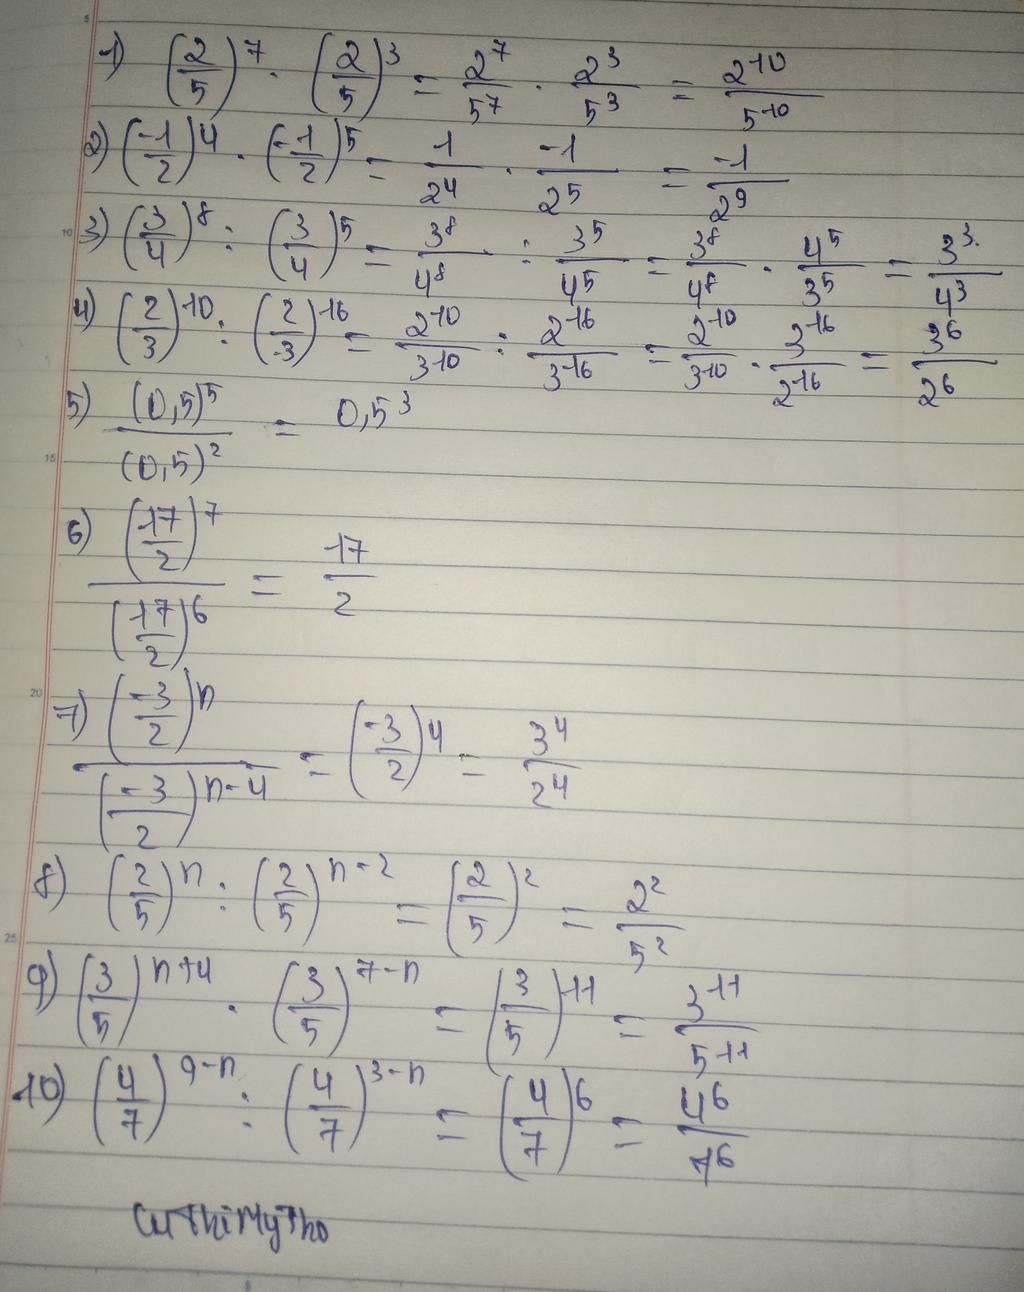 1) (2/5)^7 · (2/5)^3 = 2^7/5^7 · 2^3/5^3 = 2^10/5^10
2) (-1/2)^4 · (-1/2)^5 = 1/2^4 · -1/2^5 = -1/2^9
3) (3/4)^8 : (3/4)^5 = 3^8/4^8 : 3^5/4^5 = 3^8/4^8 · 4^5/3^5 = 3^3/4^3
4) (2/3)^10 : (2/-3)^16 = 2^10/3^10 : 2^16/3^16 = 2^10/3^10 · 3^16/2^16 = 3^6/2^6
5) (0,5)^5/(0,5)^2 = 0,5^3
6) (17/2)^7/(17/2)^6 = 17/2
7) (-3/2)^n/(-3/2)^(n-4) = (-3/2)^4 = 3^4/2^4
8) (2/5)^n : (2/5)^(n-2) = (2/5)^2 = 2^2/5^2
9) (3/5)^(n+4) · (3/5)^(7-n) = (3/5)^11 = 3^11/5^11
10) (4/7)^(9-n) : (4/7)^(3-n) = (4/7)^6 = 4^6/7^6
CuThiMyTho